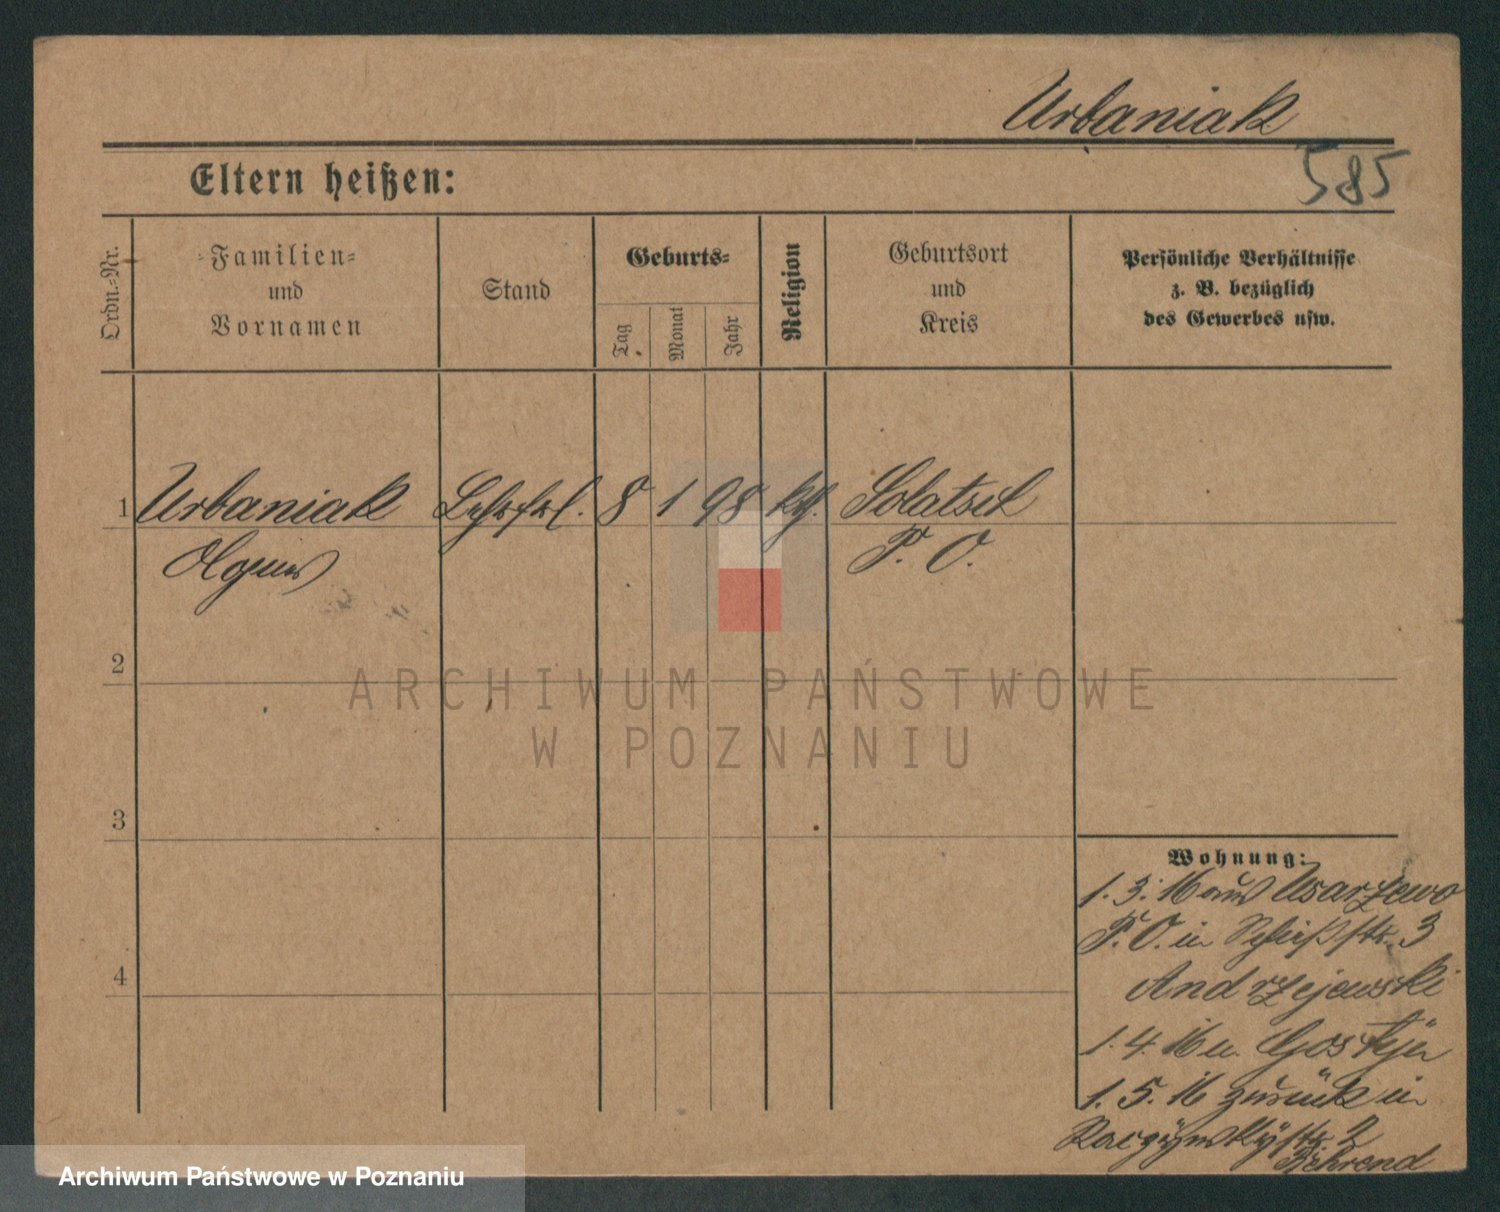 Urbaniak
585
Eltern heißen:
Ordn.-Nr.
Familien-
und
Vornamen
Stand
Geburts-
Tag
Monat
Jahr
Religion
Geburtsort
und
Kreis
Persönliche Verhältnisse
z. B. bezüglich
des Gewerbes usw.
1 Urbaniak Lehrfrl. 8 1 98 kth. Solatsch
P. O.
2
3
4
Wohnung:
1. 3. 16 aus Usarzewo
P. O. in 3
Andrzejewski
1. 4. 16 n. Gostyn
1. 5. 16 zurück in
Raczynskistr. 2
Behrend
ARCHIWUM PAŃSTWOWE
W POZNANIU
Archiwum Państwowe w Poznaniu